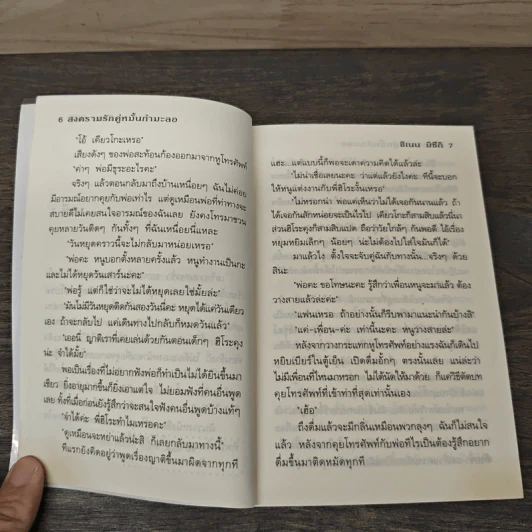 6 สงครามรักคู่หมั้นกำมะลอ
"โอ้ เคียวโกะเหรอ"
เสียงดังๆ ของพ่อสะท้อนก้องออกมาจากหูโทรศัพท์
"ค่าๆ พ่อมีธุระอะไรคะ"
จริงๆ แล้วตอนกลับมาถึงบ้านเหนื่อยๆ ฉันไม่ค่อย
มีอารมณ์อยากคุยกับพ่อเท่าไร แต่ดูเหมือนพ่อที่ท่าทาง
สบายดีไม่เคยสนใจอารมณ์ของฉันเลย ยังคงโทรมาชวน
คุยหลายวันติดๆ กันทั้งๆ ที่ฉันเหนื่อยนี่แหละ
"วันหยุดคราวนี้จะไม่กลับมาหน่อยเหรอ"
"พ่อคะ หนูบอกตั้งหลายครั้งแล้ว หนูทำงานเป็นกะ
และไม่ได้หยุดวันเสาร์นะคะ"
"พ่อรู้ แต่ก็ใช่ว่าจะไม่ได้หยุดเลยใช่มั้ยล่ะ"
"มันไม่มีวันหยุดติดกันสองวันนี่คะ หยุดได้แค่วันเดียว
เอง ถ้าจะกลับไป แค่เดินทางไปกลับก็หมดวันแล้ว"
"เออนี่ ญาติเราที่เคยเล่นด้วยกันตอนเด็กๆ ฮิโระคุง
น่ะ จำได้มั้ย"
พอเป็นเรื่องที่ไม่อยากฟังพ่อก็ทำเป็นไม่ได้ยินขึ้นมา
เชียว ยิ่งอายุมากขึ้นก็ยิ่งเอาแต่ใจ ไม่ยอมฟังที่คนอื่นพูด
เลย ทั้งที่เมื่อก่อนยังรู้สึกว่าจะสนใจฟังคนอื่นพูดบ้างแท้ๆ
"จำได้ค่ะ พี่ฮิโระทำไมเหรอคะ"
"ดูเหมือนจะหย่าแล้วน่ะสิ ก็เลยกลับมาทางนี้"
ทีแรกยังคิดอยู่ว่าพูดเรื่องญาติขึ้นมาผิดจากทุกที
ชิเนน มิซึกิ 7
แฮะ...แต่แบบนี้ก็พอจะเดาความคิดได้แล้วล่ะ
"ไม่น่าเชื่อเลยนะคะ ว่าแต่แล้วยังไงคะ ทีนี้จะบอก
ให้หนูแต่งงานกับพี่ฮิโระงั้นเหรอ"
"ไม่หรอกน่า พ่อแค่เห็นว่าไม่ได้เจอกันนานแล้ว ถ้า
ได้เจอกันสักหน่อยจะเป็นไรไป เคียวโกะก็สามสิบแล้วนี่นา
ส่วนฮิโระคุงก็สามสิบแปด ถือว่าวัยใกล้ๆ กันพอดี ไอ้เรื่อง
หยุมหยิมเล็กๆ น้อยๆ น่ะไม่ต้องไปใส่ใจมันก็ได้"
มาแล้วไง ตั้งใจจะจับคู่ฉันกับทางนั้น...จริงๆ ด้วย
สินะ
"พ่อคะ ขอโทษนะคะ รู้สึกว่าเพื่อนหนูจะมาแล้ว ต้อง
วางสายแล้วล่ะค่ะ"
"แฟนเหรอ ถ้าอย่างนั้นก็รีบพามาแนะนำกันบ้างสิ"
"แค่–เพื่อน–ค่ะ เท่านี้นะคะ หนูวางสายล่ะ"
หลังจากวางกระแทกหูโทรศัพท์อย่างแรงฉันก็เดินไป
หยิบเบียร์ในตู้เย็น เปิดดื่มอั้กๆ ตรงนั้นเลย แน่ล่ะว่า
ไม่มีเพื่อนที่ไหนมาหรอก ไม่ได้นัดให้มาด้วย ก็แค่วิธีตัดบท
คุยโทรศัพท์ที่เข้าท่าที่สุดเท่านั้นเอง
"เฮ้อ"
ถึงดื่มแล้วจะมีกลิ่นเหมือนพวกลุงๆ ฉันก็ไม่สนใจ
แล้ว หลังจากคุยโทรศัพท์กับพ่อทีไรเป็นต้องรู้สึกอยาก
ดื่มขึ้นมาติดหมัดทุกที